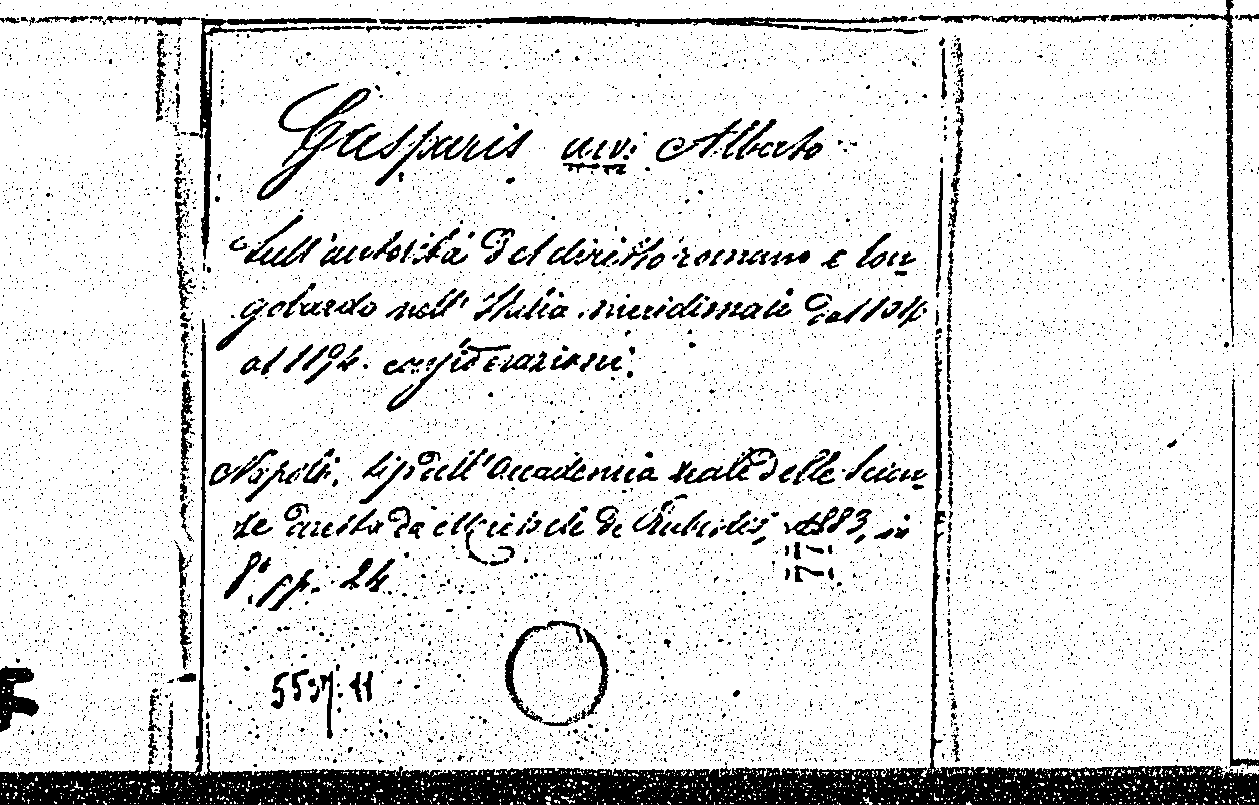 Gasparis avv: Alberto
Sull'autorità del diritto romano e lon-
gobardo nell'Italia meridionale dal 1314
al 1194. considerazioni.
Napoli, tip. dell'Accademia reale delle Scien-
ze diretta da Michele de Rubertis, 1883, in
8° pp. 24
5537.11